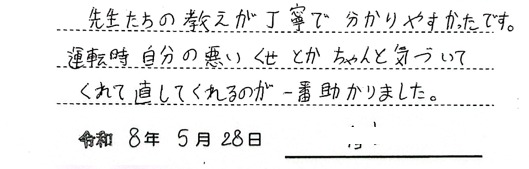 先生たちの教えが丁寧で分かりやすかったです。
運転時自分の悪いくせとかちゃんと気づいて
くれて直してくれるのが一番助かりました。
令和 8年 5月 28日